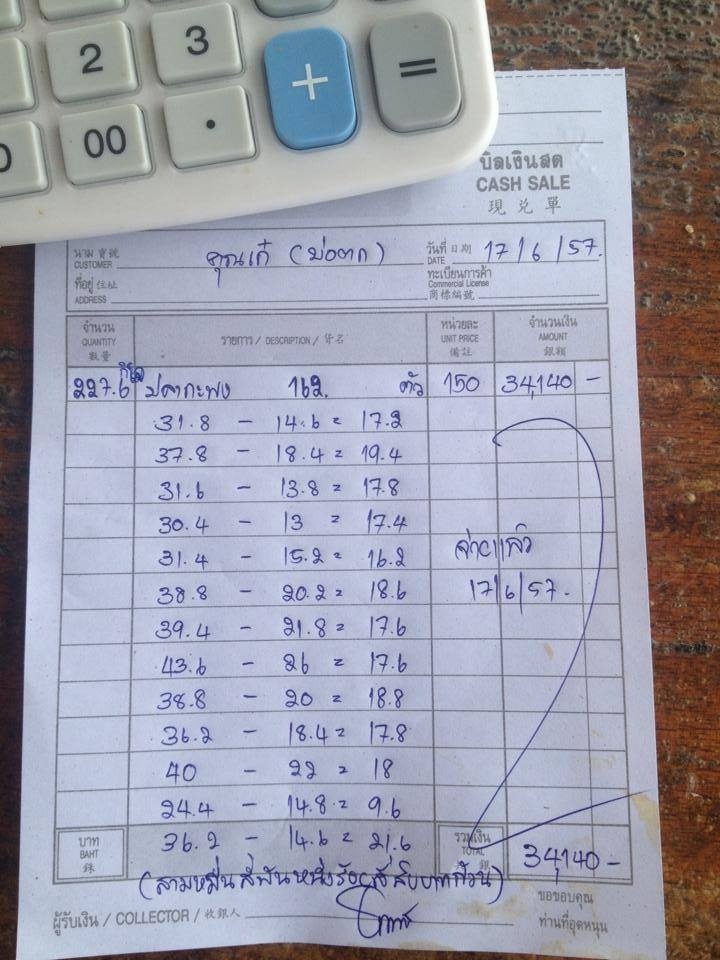 2 3 + =
0 00 .
บิลเงินสด
CASH SALE
現兌單
นาม 寶號
CUSTOMER คุณเก๋ (บ่อตก)
วันที่ 日期
DATE 17/6/57.
ที่อยู่ 住址
ADDRESS
ทะเบียนการค้า
Commercial License
商標編號
จำนวน QUANTITY 數量
รายการ / DESCRIPTION / 貨名
หน่วยละ UNIT PRICE 備註
จำนวนเงิน AMOUNT 銀額
227.6 กิโล ปลากะพง 162. ตัว 150 34,140 -
31.8 - 14.6 = 17.2
37.8 - 18.4 = 19.4
31.6 - 13.8 = 17.8
30.4 - 13 = 17.4
31.4 - 15.2 = 16.2
จ่ายแล้ว
38.8 - 20.2 = 18.6
17/6/57.
39.4 - 21.8 = 17.6
43.6 - 26 = 17.6
38.8 - 20 = 18.8
36.2 - 18.4 = 17.8
40 - 22 = 18
24.4 - 14.8 = 9.6
36.2 - 14.6 = 21.6
บาท
BAHT
銖
รวมเงิน
TOTAL
銀
34,140 -
(สามหมื่นสี่พันหนึ่งร้อยสี่สิบบาทถ้วน)
ผู้รับเงิน / COLLECTOR / 收銀人
ขอขอบคุณ
ท่านที่อุดหนุน